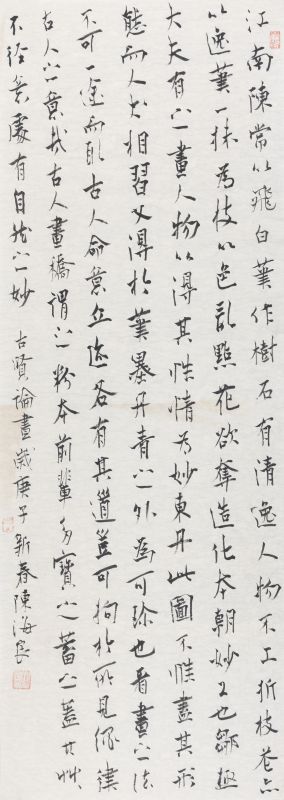 江南陳常以飛白筆作樹石有清逸人物不工折枝花亦
以逸筆一抹為枝以色亂點花欲奪造化本朝妙工也鄒
大夫有之畫人物以得其性情為妙東丹此圖不惟盡其形
態而人犬相習又得於筆墨丹青之外為可珍也看畫之法
不可一途而取古人命意立迹各有其道豈可拘於所見繩律
古人之意哉古人畫稿謂之粉本前輩多寶之蓄之蓋其草
不經意處有自然之妙 古賢論畫歲庚子新春陳海良